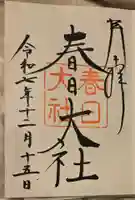 奉拝
春日大社
春日大社
令和七年十二月十五日